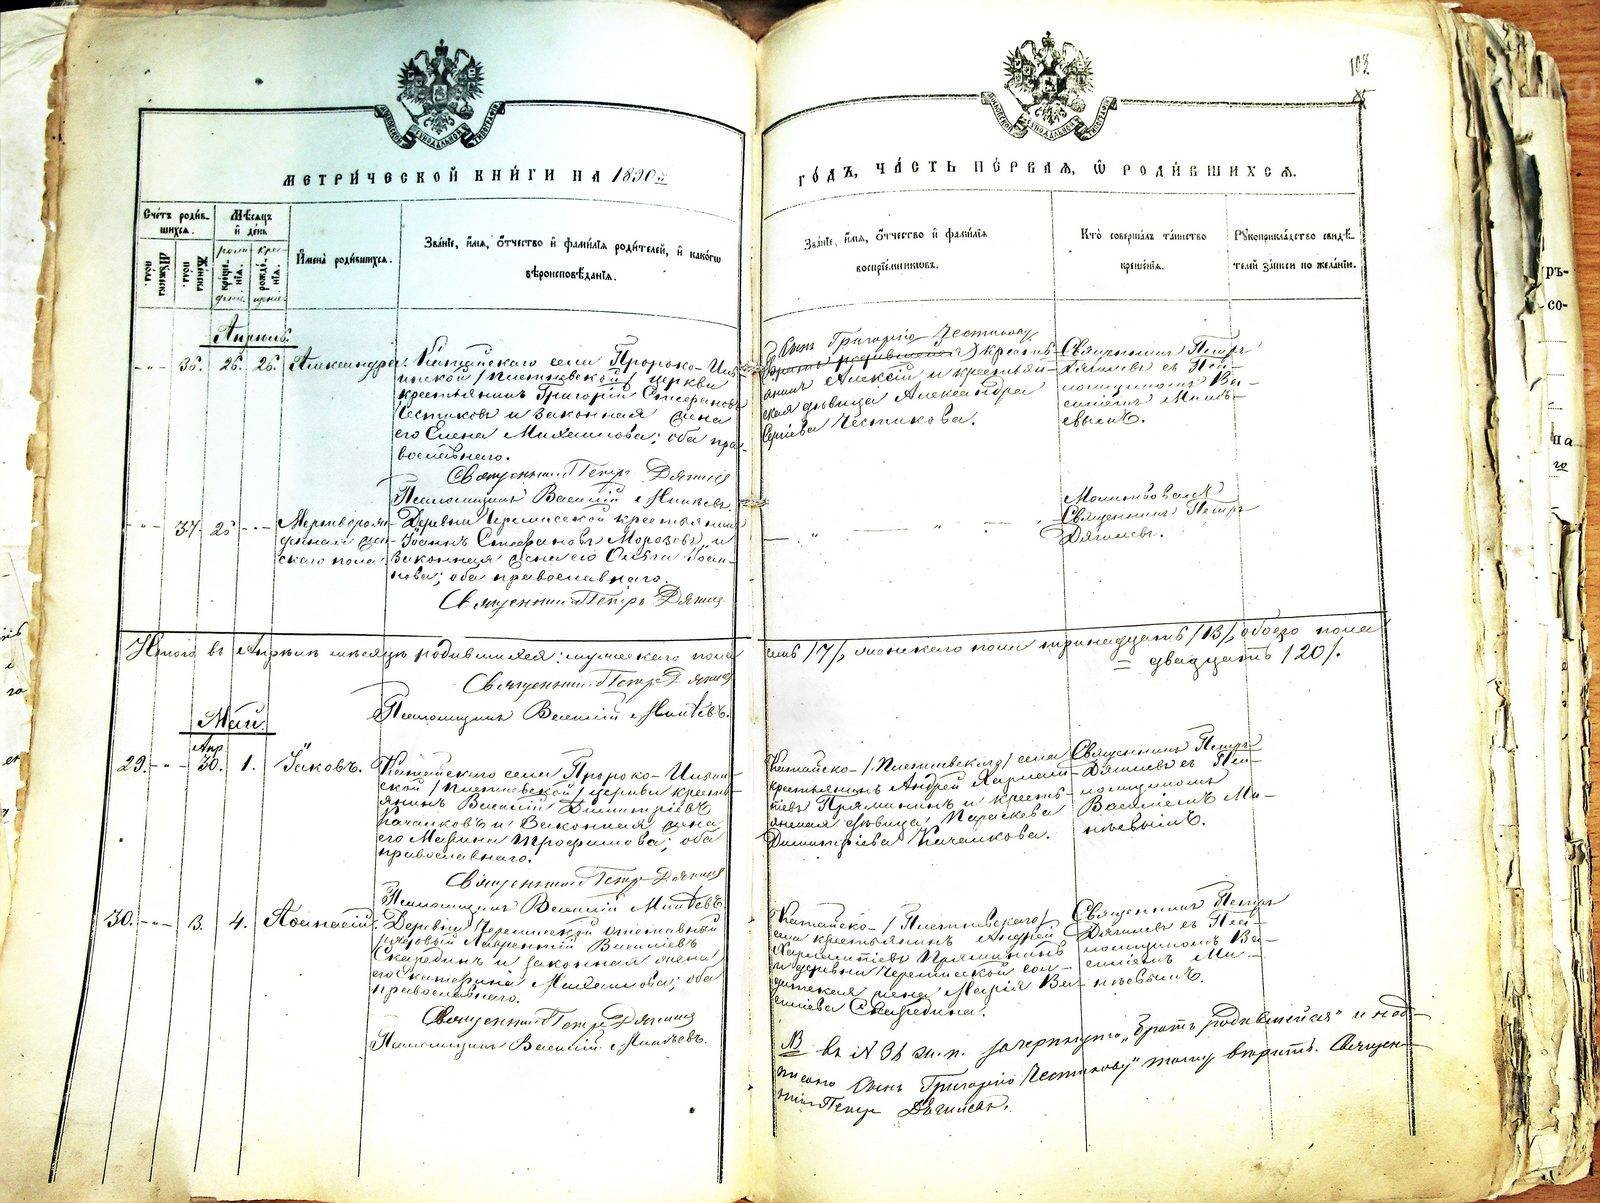 103.
МЕТРИ́ЧЕСКОЙ КНИ́ГИ НА 1890й
ГО́ДЪ, ЧА́СТЬ ПЕ́РВАЯ, Ѿ РОДИ́ВШИХСЯ.
Сче́тъ роди́вшихся.
Му́жеска по́ла.
Же́нска по́ла.
Мѣ́сяцъ и҆ де́нь
рожде́нія.
креще́нія.
И҆мена̀ роди́вшихся.
Зва́ніе, и҆́мя, ѻ҆́тчество и҆ фами́лія роди́телей, и҆ како́гѡ
вѣроисповѣ́данія.
Зва́ніе, и҆́мя, ѻ҆́тчество и҆ фами́лія
воспріе́мниковъ.
Кто̀ соверша́лъ та́инство
креще́нія.
Рꙋкоприкла́дство свидѣ́-
телей за́писи по жела́нію.
Апрѣль.
36. 26. 26. Александра.
Катайскаго села Пророко-Иль-
инской /Плетневской/ церкви
крестьянинъ Григорій Стефановъ
Чистиковъ и законная жена
его Елена Михаилова; оба пра-
вославнаго.
Священникъ Петръ Дягилев
Псаломщикъ Василій Минѣевъ.
Сынъ Григорію Чистикову
(Братъ родившейся) кресть-
янинъ Алексій и крестьян-
ская дѣвица Александра
Сергіева Чистикова.
Священникъ Петръ
Дягилевъ съ Пса-
ломщикомъ Ва-
силіемъ Минѣ-
евымъ.
37. 25 Мертворож-
денный жен-
скаго пола.
Деревни Черемисской крестьянинъ
Іоаннъ Стефановъ Морозовъ и
законная жена его Ольга Іоан-
нова; оба православнаго.
Священникъ Петръ Дягил
Молитвовалъ
Священникъ Петръ
Дягилевъ.
Итого въ Апрѣлѣ мѣсяцѣ родившихся: мужескаго пола
семь /7/, женскаго пола тринадцать /13/, обоего пола
= двадцать /20/.
Священникъ Петръ Дягилев
Псаломщикъ Василій Минѣевъ.
Май.
29. Апр. 30. 1. Іаковъ.
Катайскаго села Пророко-Ильин-
ской /Плетневской/ церкви кресть-
янинъ Василій Димитріевъ
Качалковъ и законная жена
его Марина Трофимова; оба
православнаго.
Священникъ Петръ Дягилев
Псаломщикъ Василій Минѣевъ.
Катайско-/Плетневскаго/ села
крестьянинъ Андрей Харлам-
піевъ Пряминынъ и кресть-
янская дѣвица Параскева
Димитріева Качалкова.
Священникъ Петръ
Дягилевъ съ Пса-
ломщикомъ
Василіемъ Ми-
нѣевымъ.
30. 3. 4. Аѳанасій.
Деревни Черемисской отставный
рядовый Лаврентій Василіевъ
Скарединъ и законная жена
его Екатерина Михаилова; оба
православнаго.
Священникъ Петръ Дягилев
Псаломщикъ Василій Минѣевъ.
Катайско-/Плетневскаго/
села крестьянинъ Андрей
Харлампіевъ Пряминынъ
и деревни Черемисской сол-
датская жена Марія Ва-
силіева Скаредина.
Священникъ Петръ
Дягилевъ съ Пса-
ломщикомъ Ва-
силіемъ Ми-
нѣевымъ.
NB въ № 36 ж. п. зачеркнуто „братъ родившейся" и над-
писано „сынъ Григорію Чистикову" тому вѣрить. Священ-
никъ Петръ Дягилевъ.